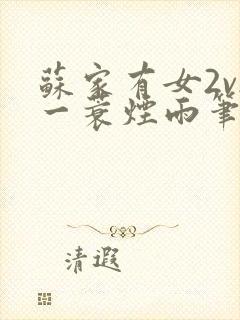 蘇家有女2v
一蓑煙雨筆
清遐